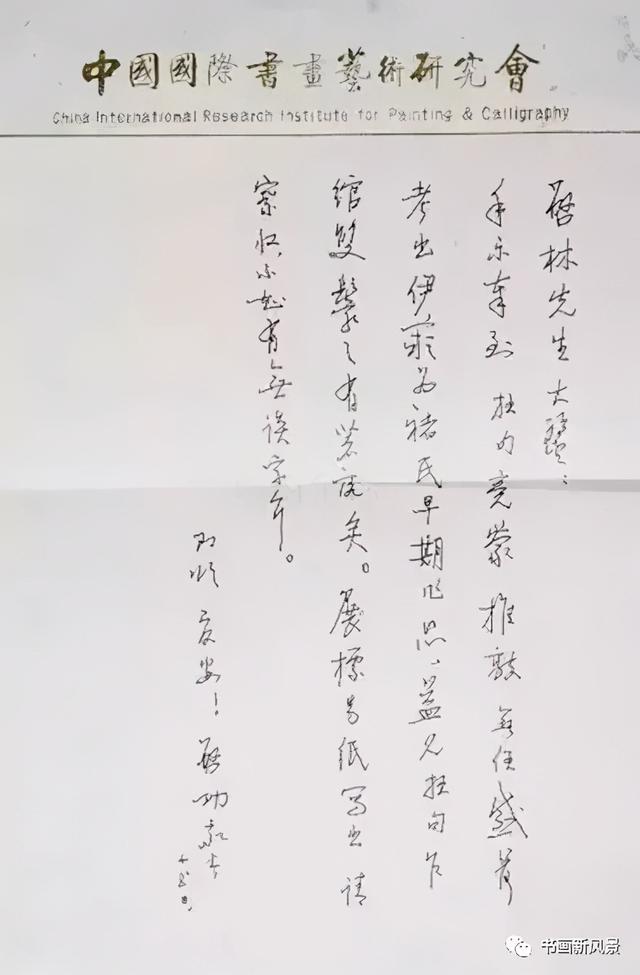 中國國際書畫藝術研究會
China International Research Institute for Painting & Calligraphy
啓林先生大鑒：
手示奉到 拙句竟蒙推敲無任感荷
考出伊闕为褚氏早期作品，益見拙句乍
綰雙鬟之有著落矣。展標另紙寫出請
察收，不知有無誤字耶。
即頌 文安！ 啓功敬上
十五日
书画新风景